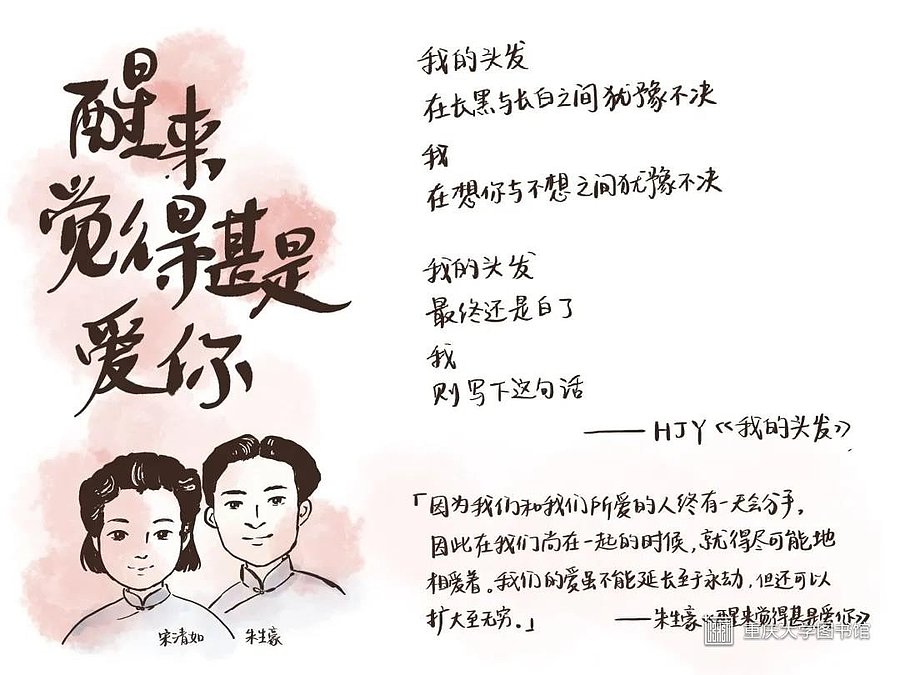 醒来
觉得甚是
爱你
宋清如
朱生豪
我的头发
在长黑与长白之间犹豫不决
我
在想你与不想之间犹豫不决
我的头发
最终还是白了
我
则写下这句话
——HJY《我的头发》
「因为我们和我们所爱的人终有一天会分手,
因此在我们尚在一起的时候,就得尽可能地
相爱着。我们的爱虽不能延长至于永劫,但还可以
扩大至无穷。」 ——朱生豪《醒来觉得甚是爱你》
重庆大学图书馆